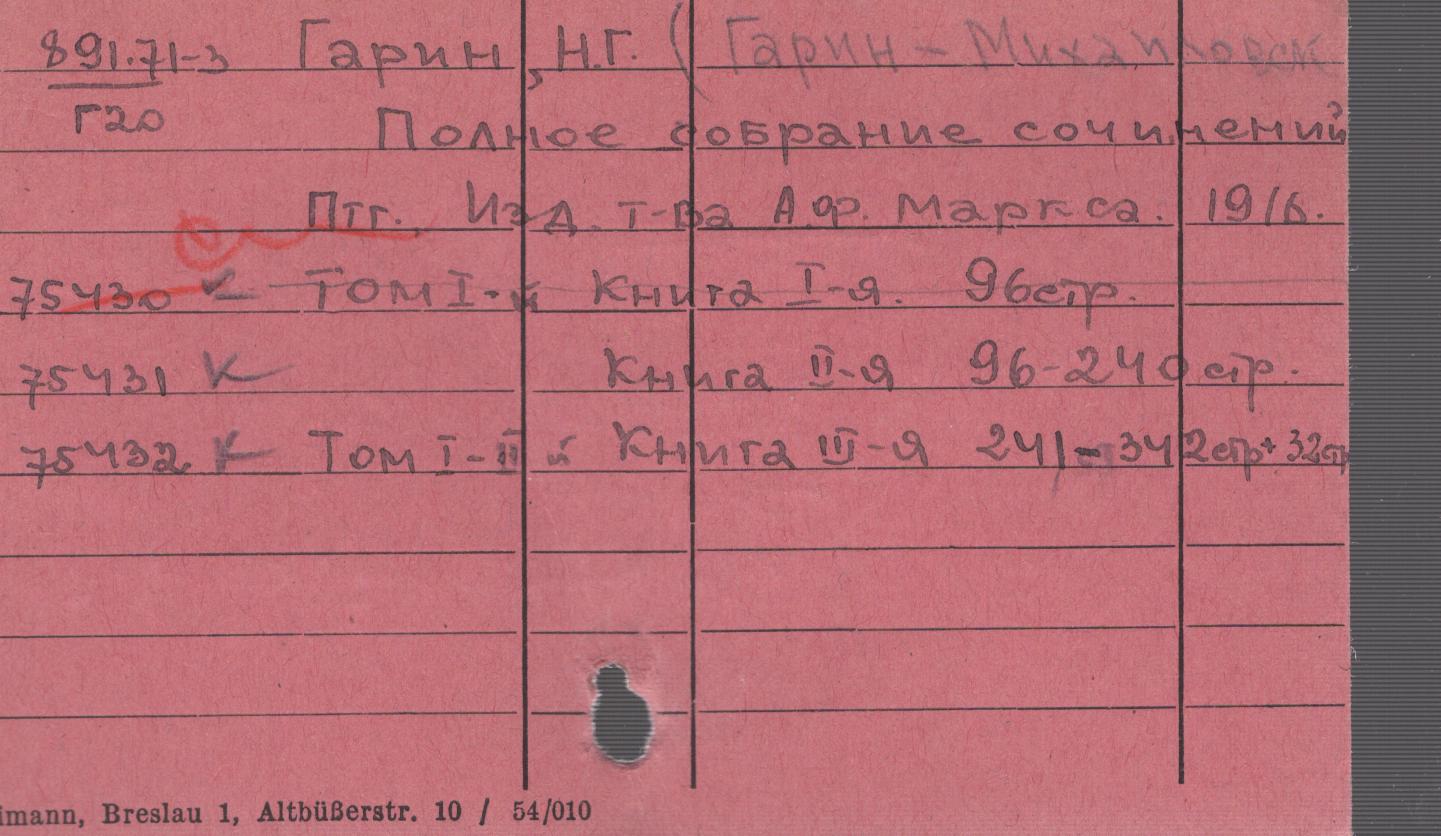 891.71-3 Гарин, Н.Г. (Гарин-Михайловск
Г20 Полное собрание сочинений
Птг. Изд. т-ва А.Ф. Маркса. 1916.
75430 Том I-й Книга I-я. 96стр.
75431 Книга II-я 96-240 стр.
75432 Том I-II й Книга III-я 241-342стр+32ст
imann, Breslau 1, Altbüßerstr. 10 / 54/010